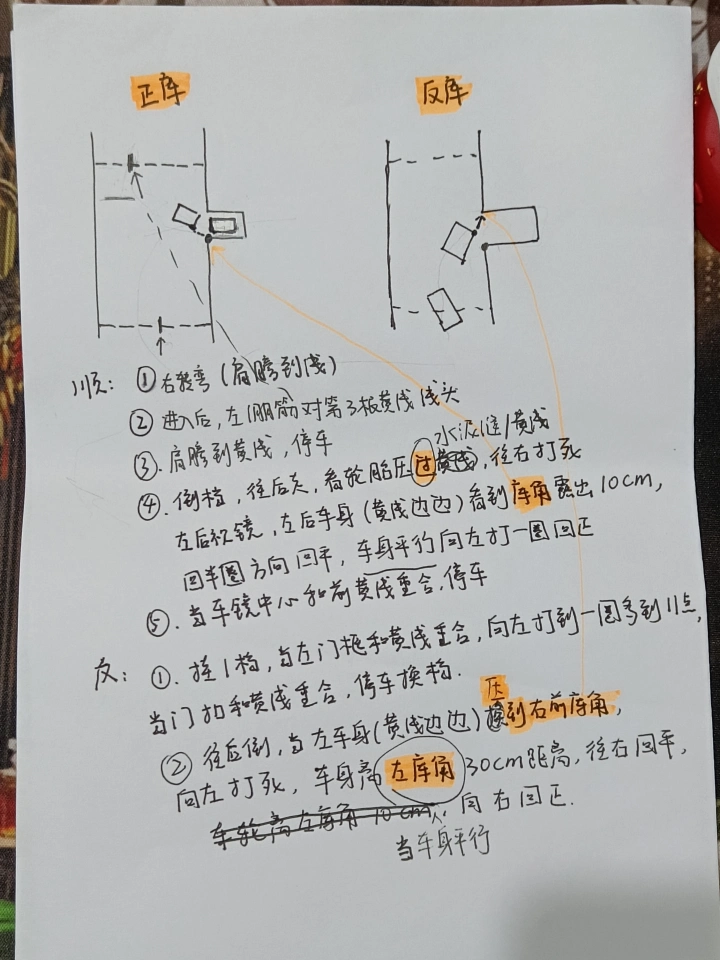 正库
反库
顺：①右转弯（肩膀到线）
②进入后，左1胴筋对第3板黄线线头
③.肩膀到黄线，停车
水泥缝/黄线
④.倒档，往后走，看轮胎压过黄线，往右打死
左后视镜，左后车身（黄线边边）看到库角露出10cm，
回半圈方向回平，车身平行向左打一圈回正
⑤.当车镜中心和前黄线重合，停车
反：①.挂1档，当左门框和黄线重合，向左打到一圈多到11点，
当门扣和黄线重合，停车换档.
②往后倒，当左车身（黄线边边）压到右前库角，
向左打死，车身离左库角30cm距离，往右回平，
车轮离左库角10cm，向右回正.
当车身平行